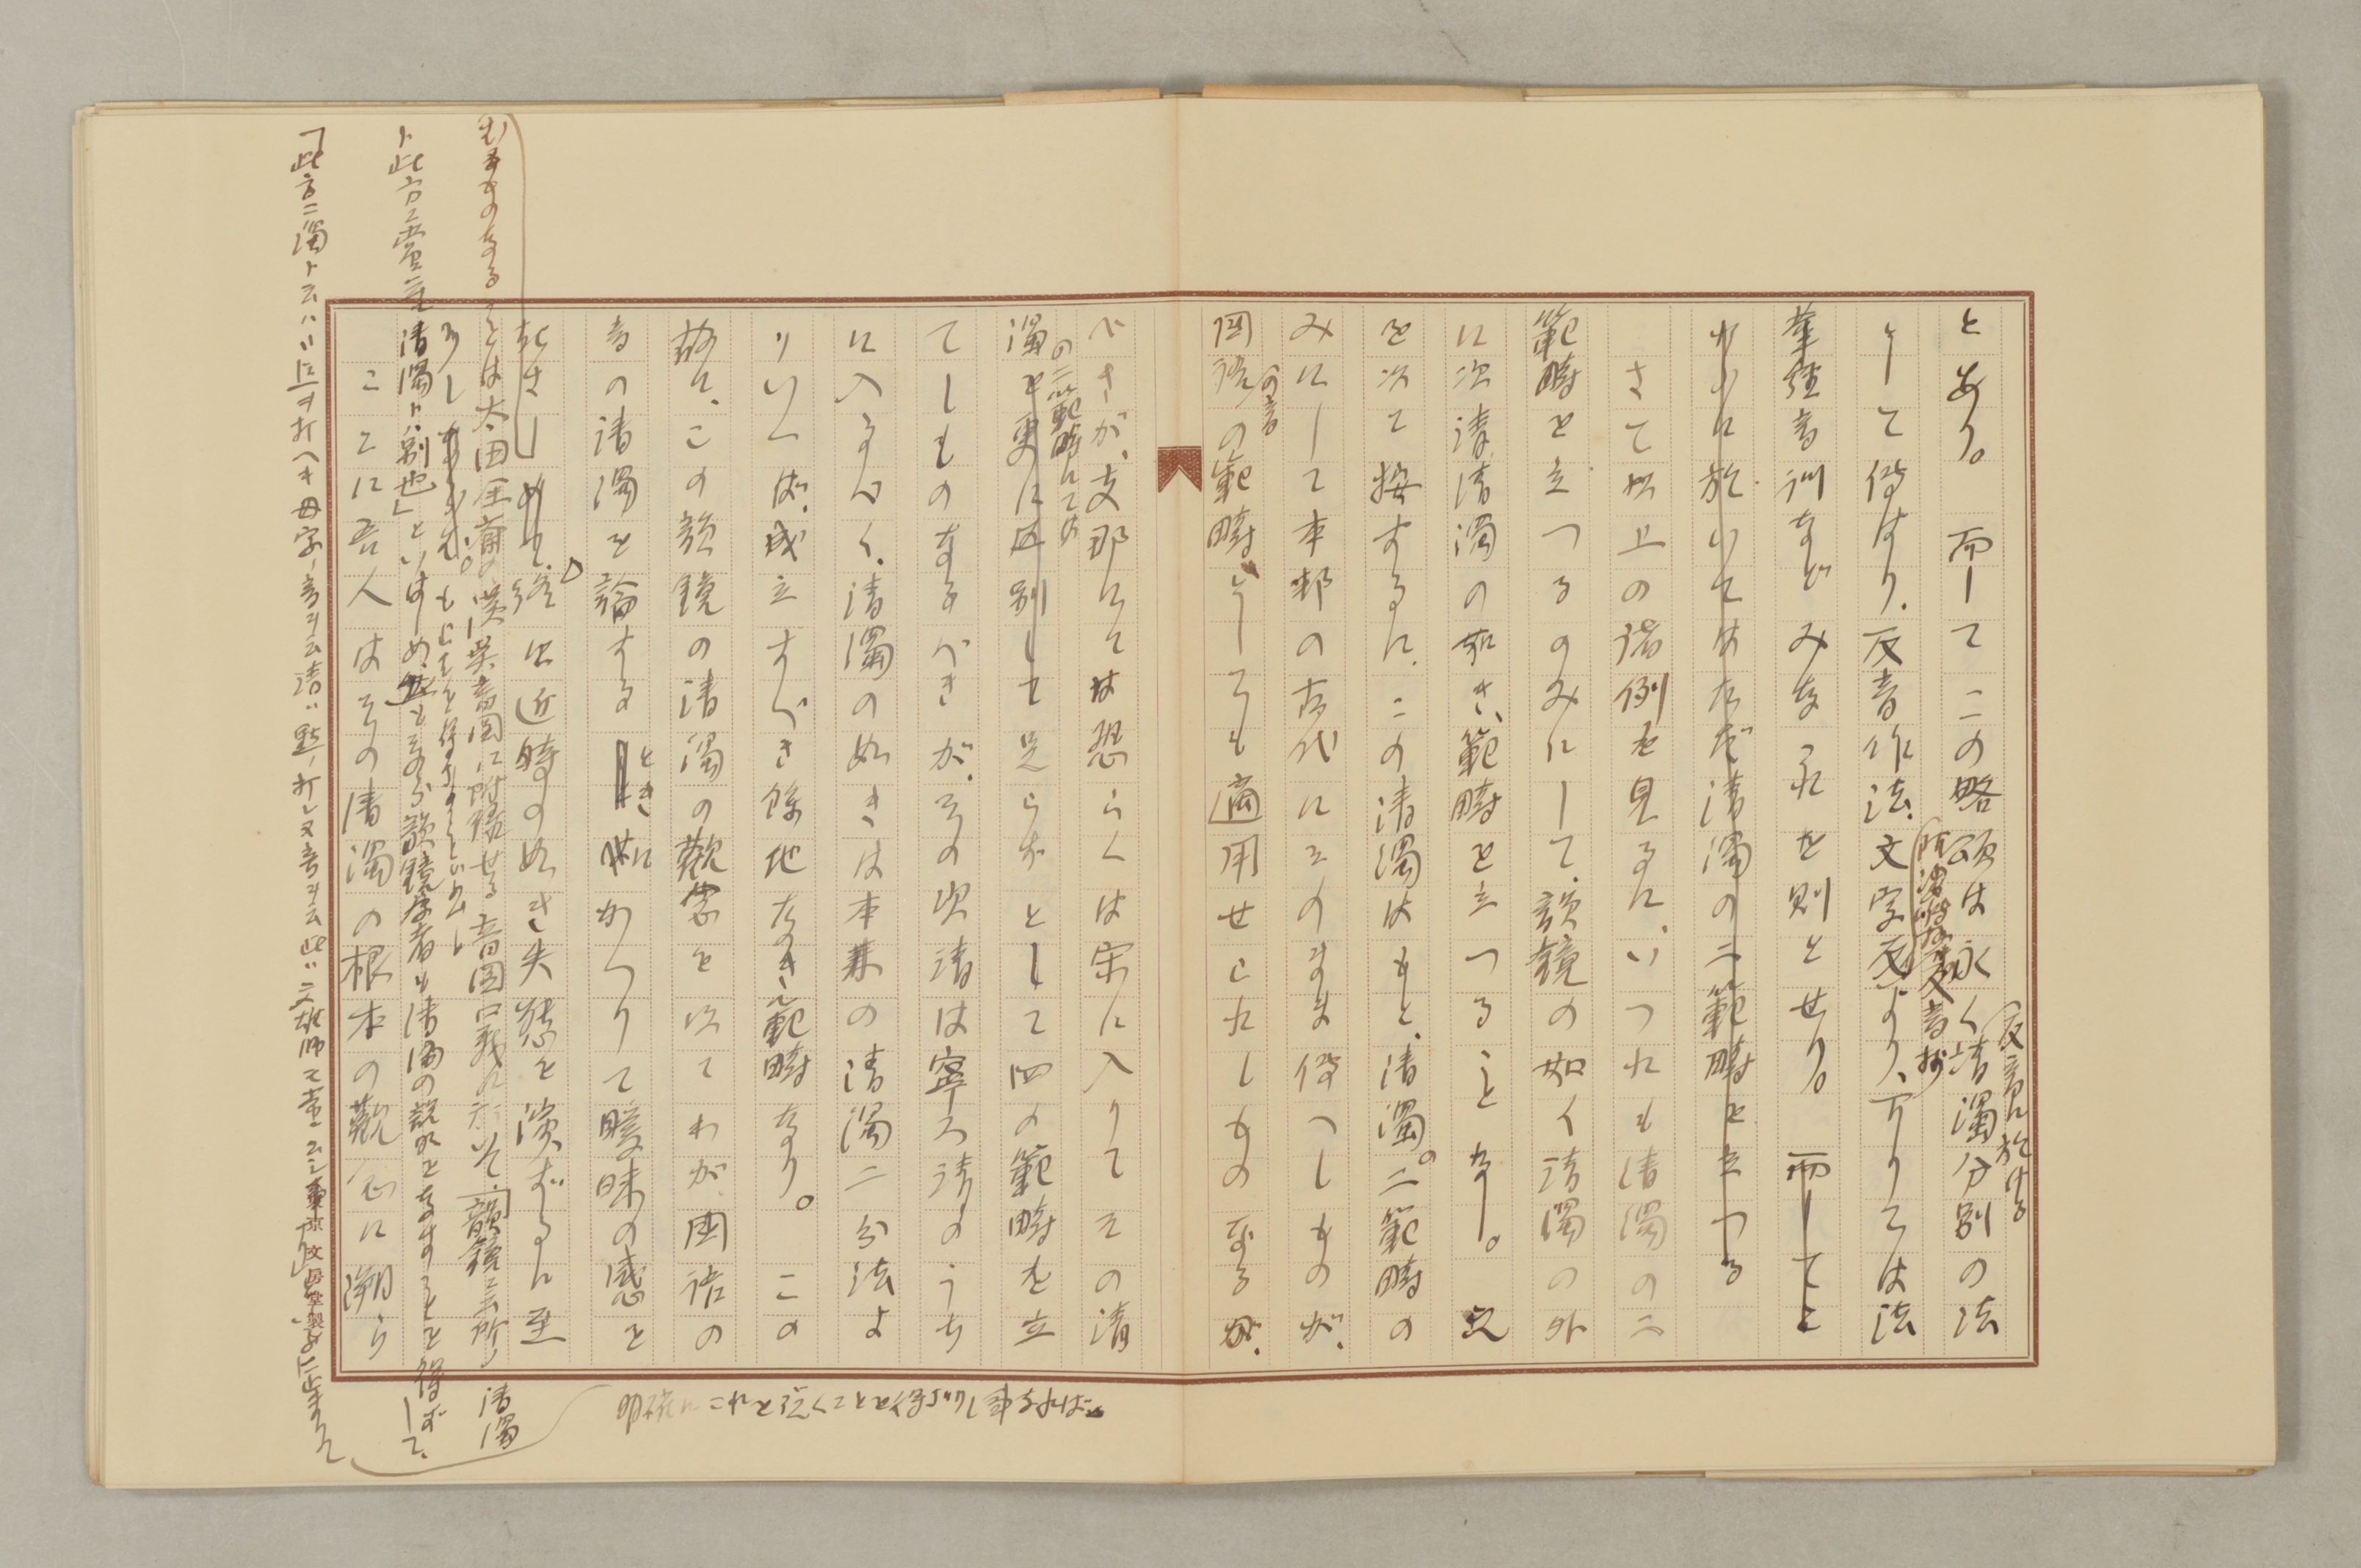 とあり。而してこの略頌は永く清濁分別の法
反音に於ける
として傳はり、反音作法、文字反より、下りては法
華経音訓などみなこれを則とせり。而してこ
れらに於いてはただ清濁の二範疇を立つる
さて以上の諸例を見るに、いづれも清濁の二
範疇を立つるのみにして、韻鏡の如く清濁の外
に次清、清濁の如き範疇を立つることなし。之
を以て按ずるに、この清濁はもと、清濁の二範疇の
みにして本邦の古代にそのまま傳へしものが、
國語の範疇としても適用せられしものなるが、
の音
べきが、支那にては恐らくは宋に入りてその清
の二範疇にては
濁を更に区別して足らずとして四の範疇を立
てしものなるべきが、その次清は寧ろ清のうち
に入るべく、清濁の如きは本来の清濁二分法よ
りいへば、成立すべき餘地なき範疇なり。この
故に、この韻鏡の清濁の観念を以てわが國語の
音の清濁を論ずるとき世にかへりて曖昧の感を
起さしめて、終に近時の如き失態を演ずるに至
明確にこれを説くことを得ざりし事なれば、
むるものなることは太田全齋の漢呉音図に附録せる音図口義に於いて、「韻鏡ニ云所ノ清濁
ト此方ニ云言清濁トハ別也」といはしめ、然もなほ韻鏡学者も清濁の説明をなすことを得ずして、
りしなるべし。もとむを得ざることといふべし
ここに吾人はその清濁の根本の観念に溯り
「此方ニ濁ト云ハ〃ヲ打ヘキ母字ノ音ヲ云清ハ點ノ打レヌ音ヲ云
東京 文房堂製